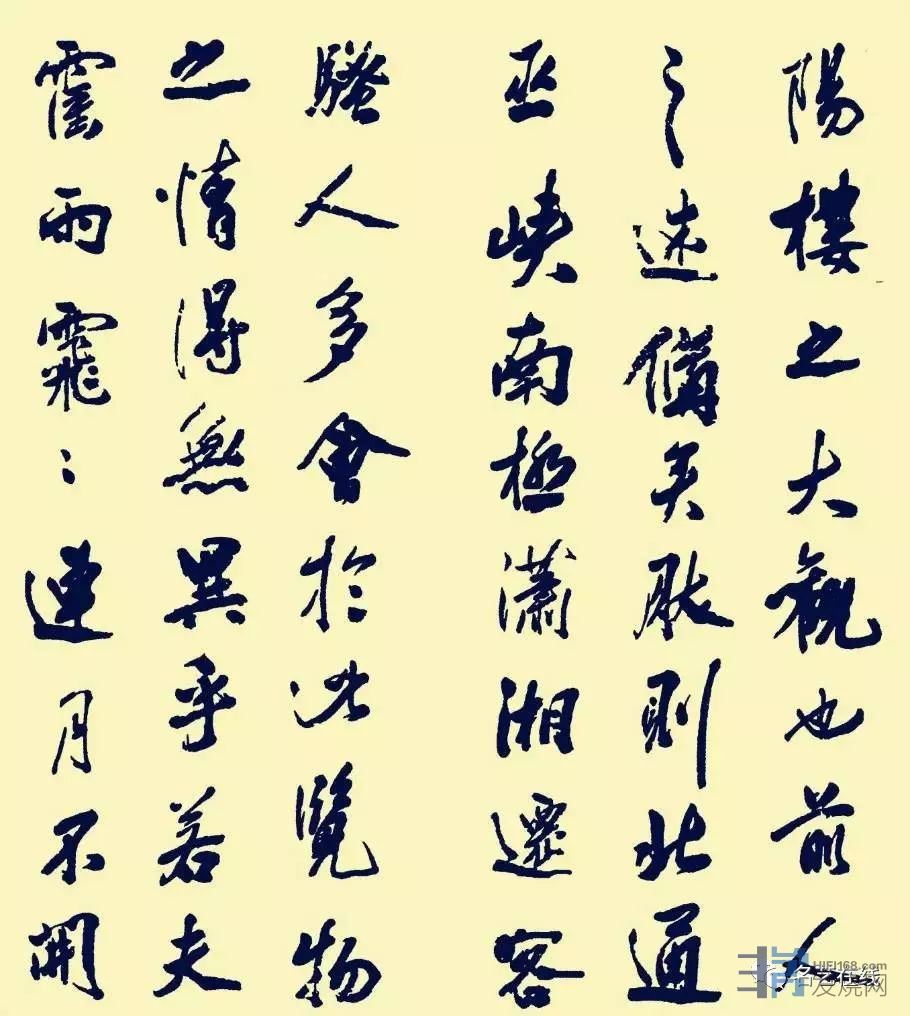 陽樓之大觀也前人
之述備矣然則北通
巫峽南極瀟湘遷客
騷人多會於此覽物
之情得無異乎若夫
霪雨霏〻連月不開
HIFI168.com
发烧网
名艺在线